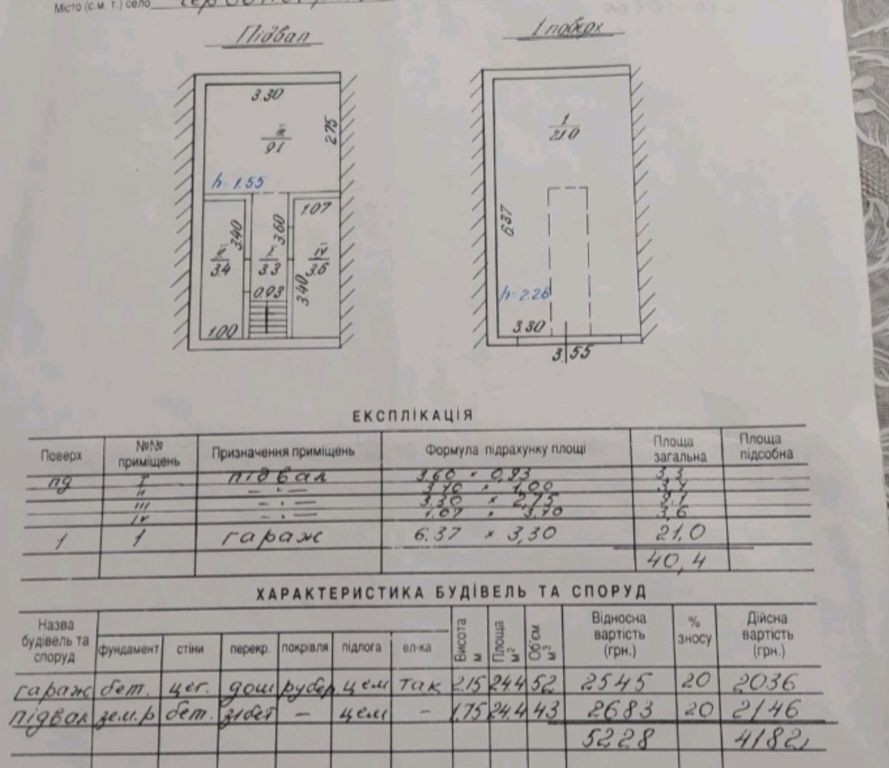 Місто (с. м. т.) село
Підвал
І поверх
3.30
2.75
III
9.1
h=1.55
1.07
3.40
3.60
II
3.4
I
3.3
IV
3.6
0.93
3.40
1.00
1
21.0
6.37
h=2.26
3.30
3.55
ЕКСПЛІКАЦІЯ
Поверх №№ приміщень Призначення приміщень Формула підрахунку площі Площа загальна Площа підсобна
пд I підвал 3.60 × 0,93 3,3
II -"- 3.40 × 1,00 3,4
III -"- 3.30 × 2,75 9.1
IV -"- 1.07 × 3,40 3,6
1 1 гараж 6.37 × 3,30 21,0
40,4
ХАРАКТЕРИСТИКА БУДІВЕЛЬ ТА СПОРУД
Назва будівель та споруд фундамент стіни перекр. покрівля підлога ел-ка Висота м Площа м² Об'єм м³ Відносна вартість (грн.) % зносу Дійсна вартість (грн.)
гараж бет. цег. дош рубер цем так 2.15 24.4 52 2545 20 2036
підвал зем.р бет. з/бет – цем – 1.75 24.4 43 2683 20 2146
5228 4182